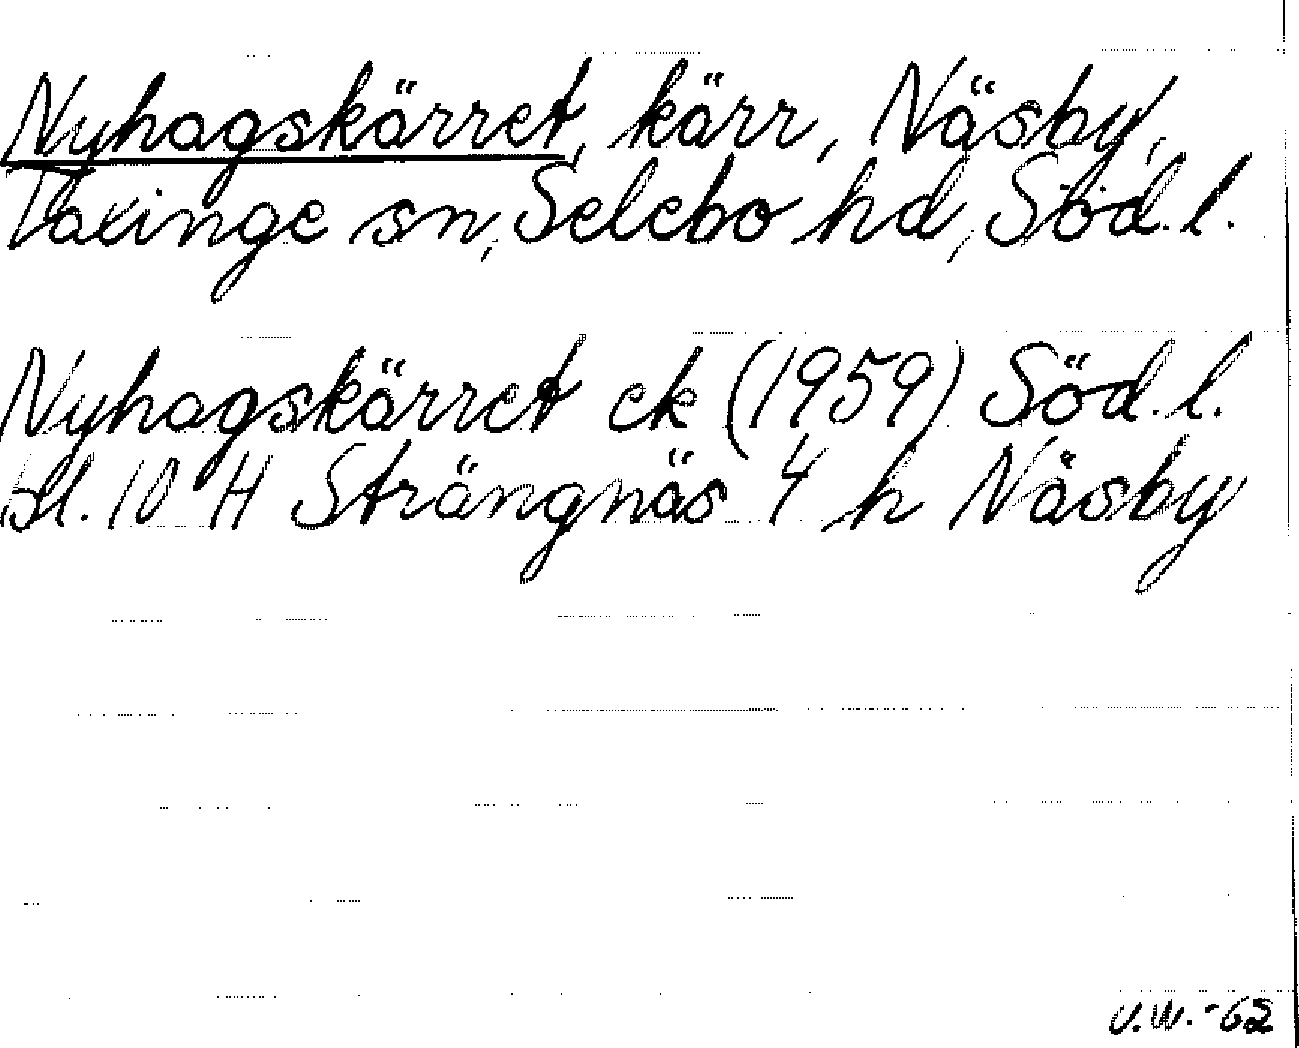 Nyhagskärret, kärr, Näsby,
Taxinge sn, Selebo hd, Söd.l.
Nyhagskärret ek (1959) Söd.l.
bl. 10 H Strängnäs 4 h Näsby
V.W. -62